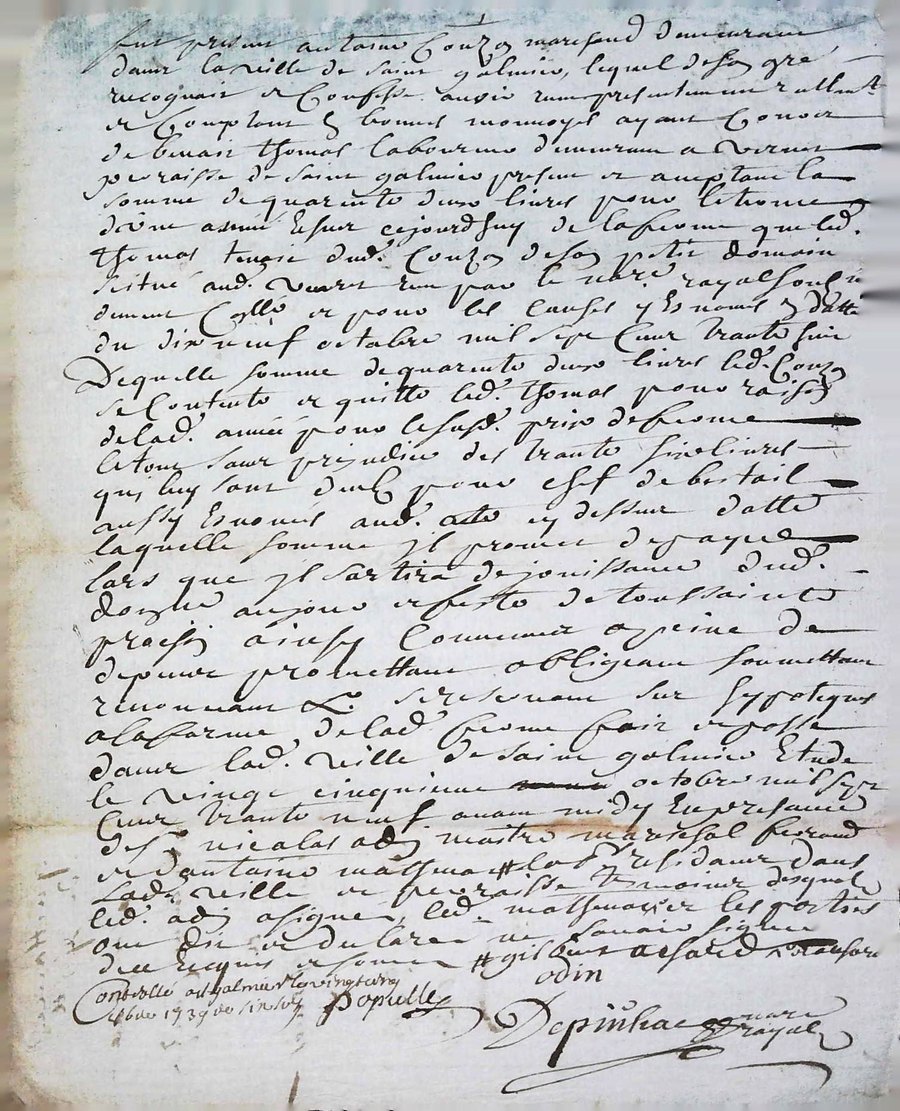 fut present antoine Couzon marchand demeurant
dans la ville de saint galmier, lequel de son gré
recognait et Confesse avoir reçeu presentement reallemt
et Comptant en bonnes monnoyes ayant Cours
de benait thomas laboureur demeurant a vernet
parroisse de saint galmier present et acceptant la
somme de quarente deux livres pour le terme
d'une année escheu cejourd'huy de la ferme que led.
thomas tenoit dud. Couzon de son petit domaine
scitué aud. vernet receu par le nore royal soub
et pour les causes y Enoncés en datte
du dix neuf octobre mil sept Cent trante six
De quelle somme de quarente deux livres led. Couzon
se Contente et quitte led. thomas pour raison
de lad. année pour le susd. prix de ferme
le tout sans prejudice des trante six livres
qui luy sont deub pour chef de bestail
aussy Enoncés aud. acte cy dessus datté
laquelle somme il promet de payer
lors que jl sortira de jouissance dud.
domaine au jour et feste de toussaints
ainsy Convenu a peine de
depens promettant obligeant soumettant
renonceant &. se reservant sur hypoteques
a la farme de lad. ferme fait et passé
dans lad. ville de saint galmier Etude
le vingt cinquieme octobre mil sept
Cent trante neuf avant midy En presence
de sr nicolas maitre marechal ferrand
et d'antoine # residants dans
Lad. ville et parroisse temoins desquels
led. a signé, led. et les parties
ont dit et declaré ne scavoir signer
de ce Enquis et sommé # gis
odin
Controllé a st galmier le vingt cinq
8bre 1739 Populle
Depinhac nore
royal